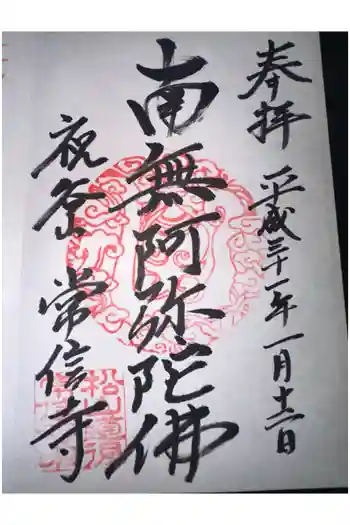 奉拝 平成三十一年一月十二日
南無阿弥陀佛
祝谷 常信寺